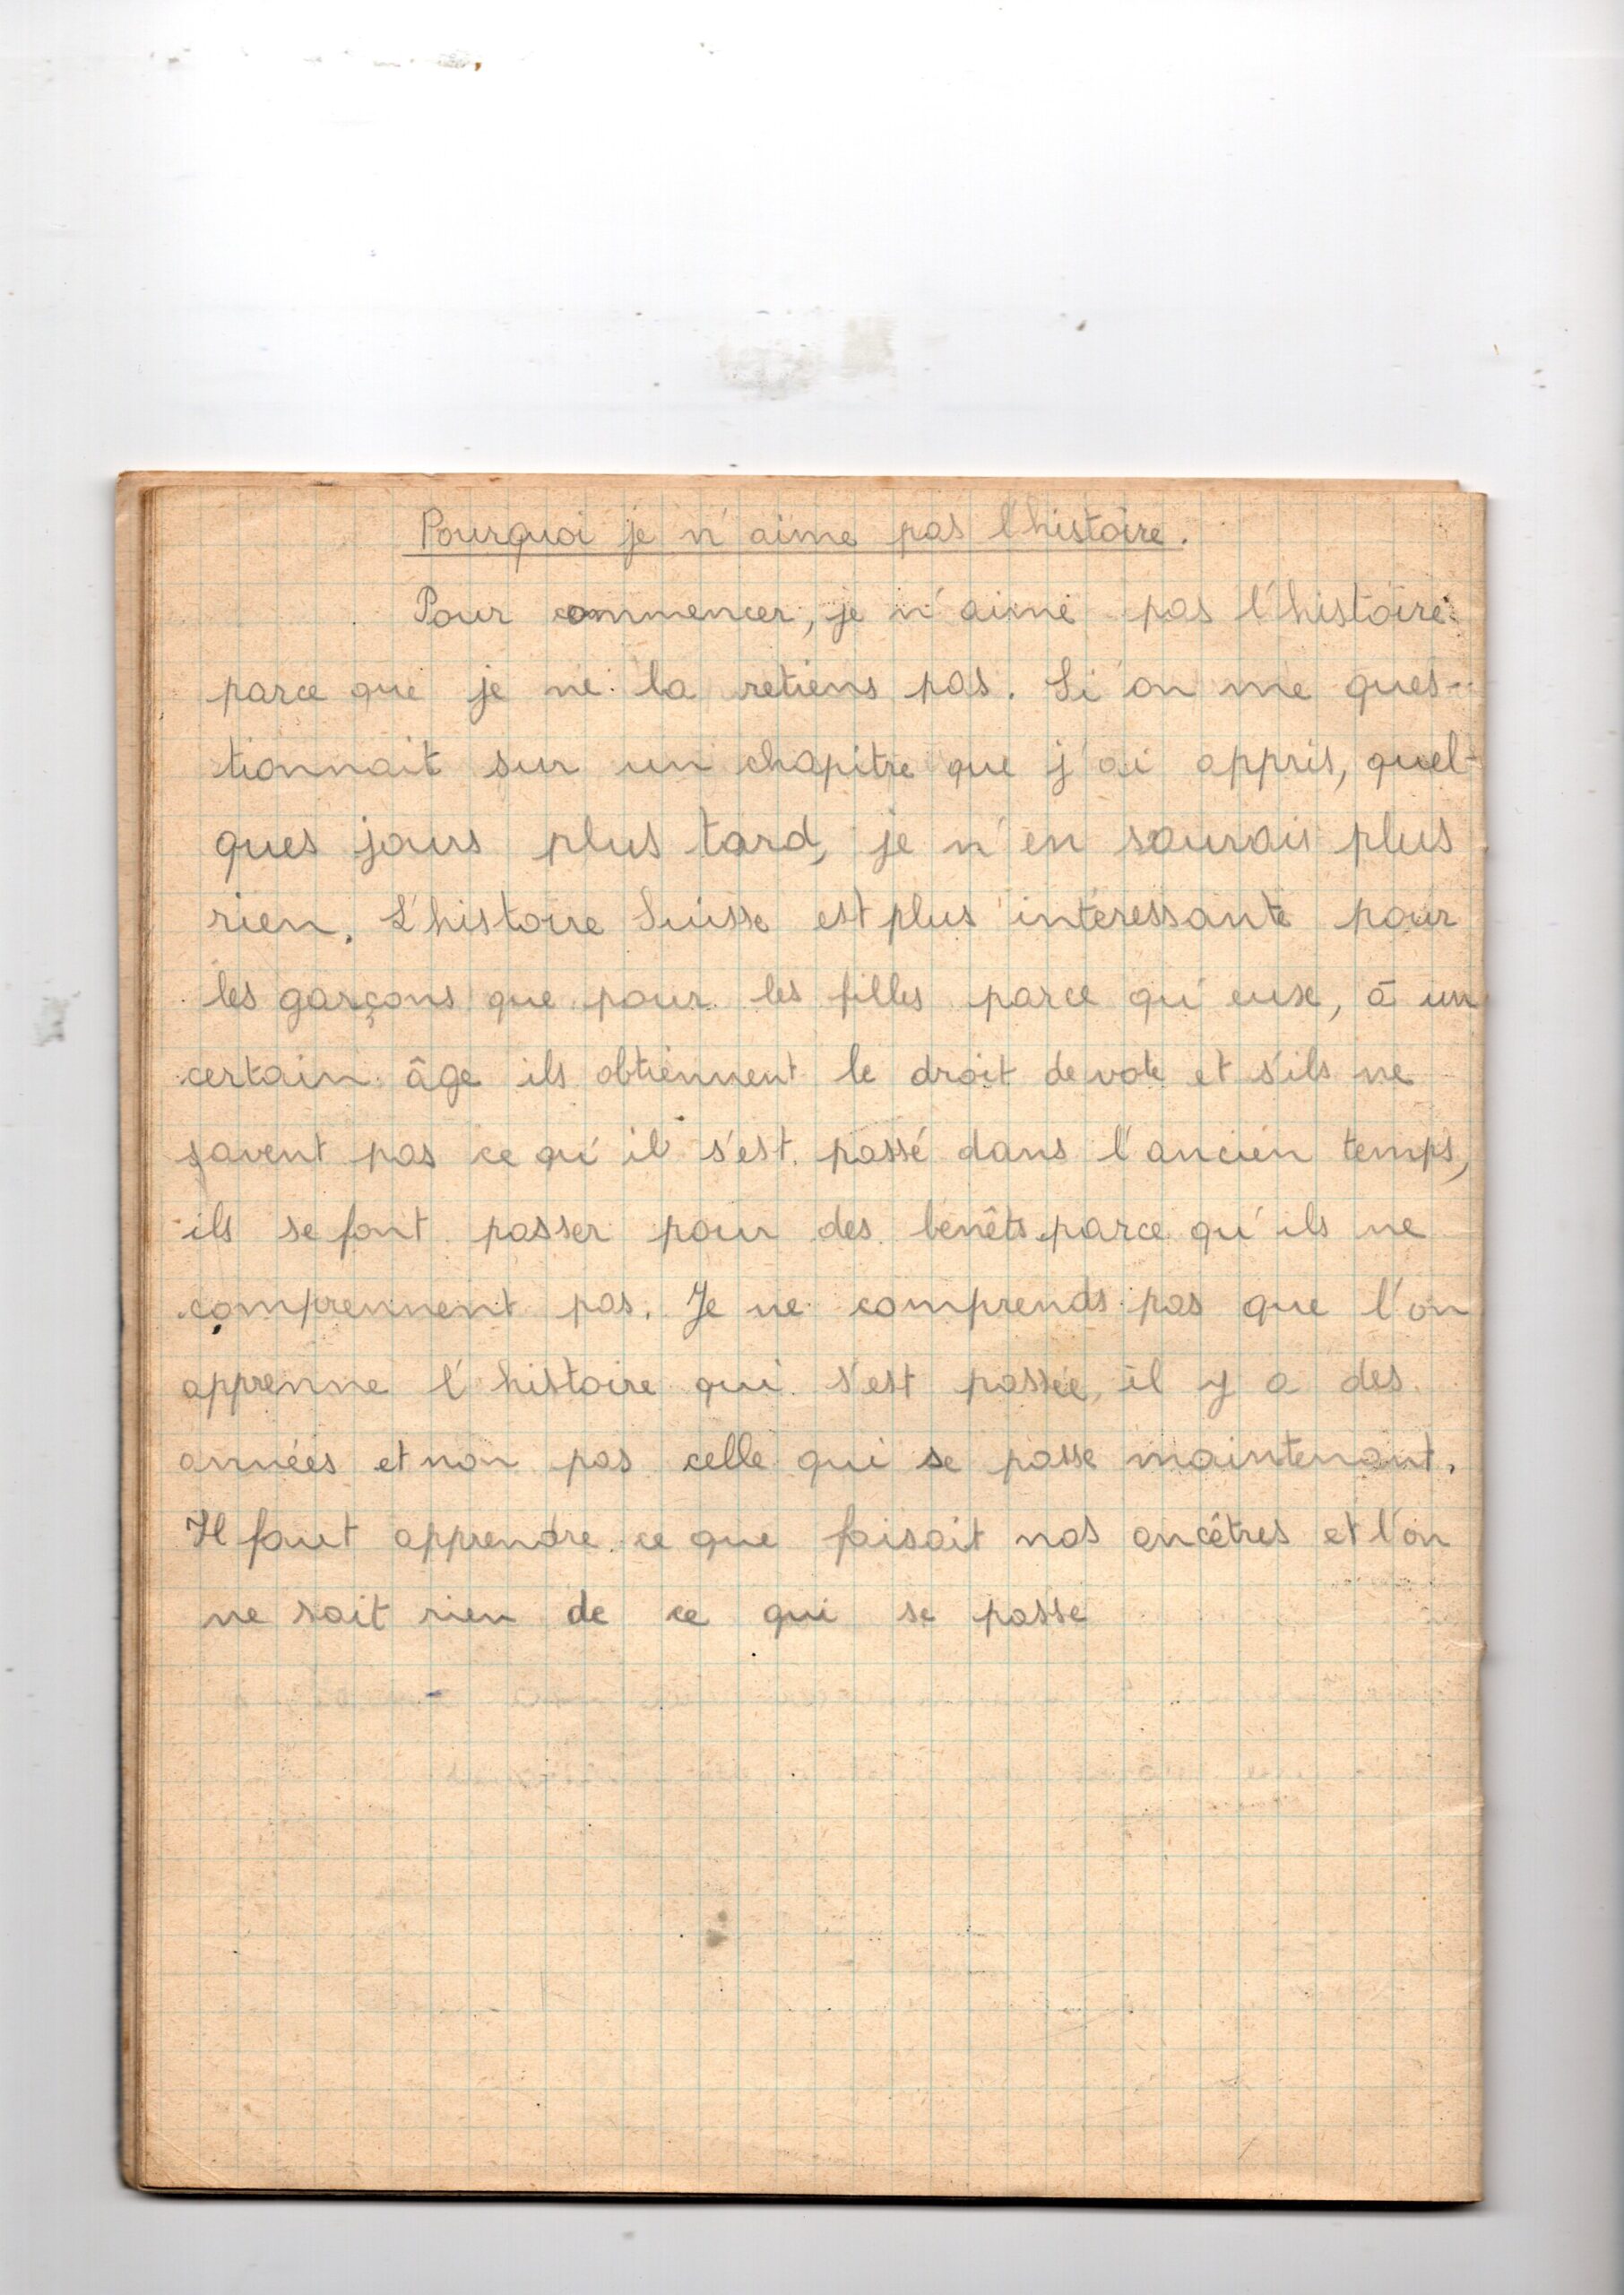 Pourquoi je n'aime pas l'histoire.
Pour commencer, je n'aime pas l'histoire
parce que je ne la retiens pas. Si on me ques-
tionnait sur un chapitre que j'ai appris, quel-
ques jours plus tard, je n'en saurais plus
rien. L'histoire Suisse est plus intéressante pour
les garçons que pour les filles parce qu'eux, à un
certain âge ils obtiennent le droit de vote et s'ils ne
savent pas ce qu'il s'est passé dans l'ancien temps,
ils se font passer pour des benêts parce qu'ils ne
comprennent pas. Je ne comprends pas que l'on
apprenne l'histoire qui s'est passée, il y a des
années et non pas celle qui se passe maintenant.
Il faut apprendre ce que faisait nos ancêtres et l'on
ne sait rien de ce qui se passe